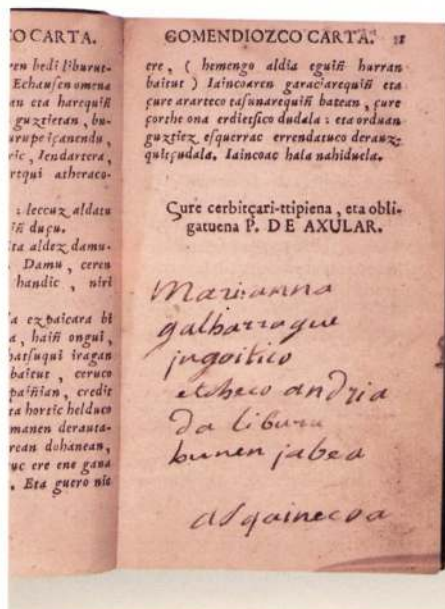 O CARTA.
ren hedi liburut-
Echausen omena
an eta harequiñ
guztietan, bu-
urupe içanendu,
ric, Iendartera,
rtqui atheraco-
: leccuz aldatu
iñ duçu.
ta aldez damu-
. Damu, ceren
handic, niri
a ezpaicara bi
a, haiñ ongui,
batsuqui iragan
baitut, ceruco
paiñian, credit
ta hortic helduco
manen derauta-
rean dohanean,
uc ere ene gana
. Eta guero nic
GOMENDIOZCO CARTA.
ere, ( hemengo aldia eguiñ hurran
baitut ) Iaincoaren garaciarequiñ eta
çure ararteco tasunarequiñ batean, çure
çorthe ona erdietsico dudala : eta orduan
guztiez esquerrac errendatuco derauz-
quitçudala. Iaincoac hala nahiduela.
Çure cerbitçari-ttipiena, eta obli-
gatuena P. DE AXULAR.
Marianna
galharrague
jngoitico
etcheco andria
da libura
hunen jabea
asquinecoa